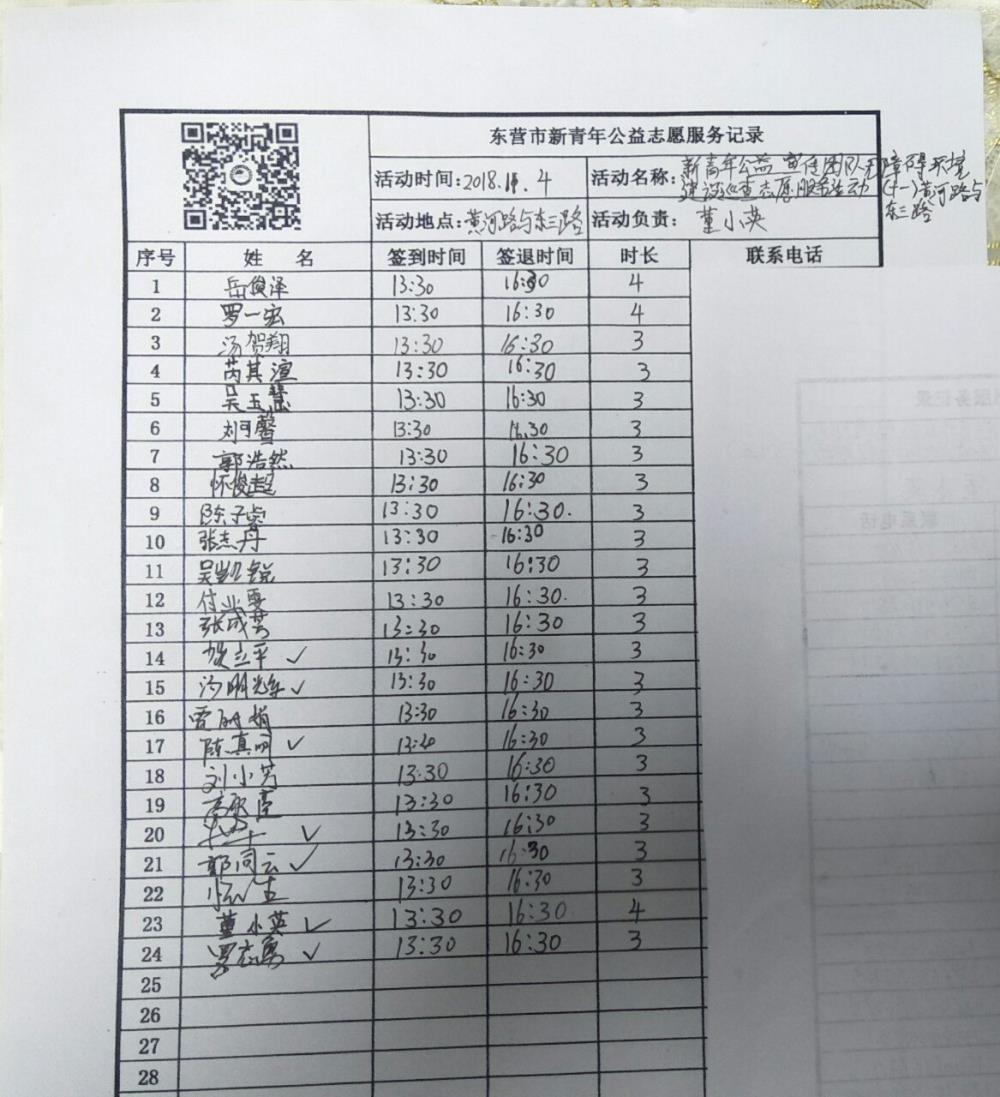 东营市新青年公益志愿服务记录
活动时间:2018.11.4 活动名称:新青年公益宣传团队无障碍环境
建设巡查志愿服务活动(十一)黄河路与
东三路
活动地点:黄河路与东三路 活动负责:董小英
序号 姓 名 签到时间 签退时间 时长 联系电话
1 岳俊泽 13:30 16:30 4
2 罗一宏 13:30 16:30 4
3 汤贺翔 13:30 16:30 3
4 芮其渲 13:30 16:30 3
5 吴玉慧 13:30 16:30 3
6 刘可馨 13:30 16.30 3
7 郭浩然 13:30 16:30 3
8 怀俊超 13:30 16:30 3
9 陈子睿 13:30 16:30. 3
10 张志丹 13:30 16:30 3
11 吴凯锐 13:30 16:30 3
12 付兴雯 13:30 16:30. 3
13 张成芳 13:30 16:30 3
14 立平 ✓ 13:30 16:30 3
15 汤明光 ✓ 13:30 16:30 3
16 雷 娟 13:30 16:30 3
17 陈真 ✓ 13:30 16:30 3
18 刘小芳 13:30 16:30 3
19 13:30 16:30 3
20 ✓ 13:30 16:30 3
21 郭同云 ✓ 13:30 16:30 3
22 13:30 16:30 3
23 董小英 ✓ 13:30 16:30 4
24 罗 勇 ✓ 13:30 16:30 3
25
26
27
28